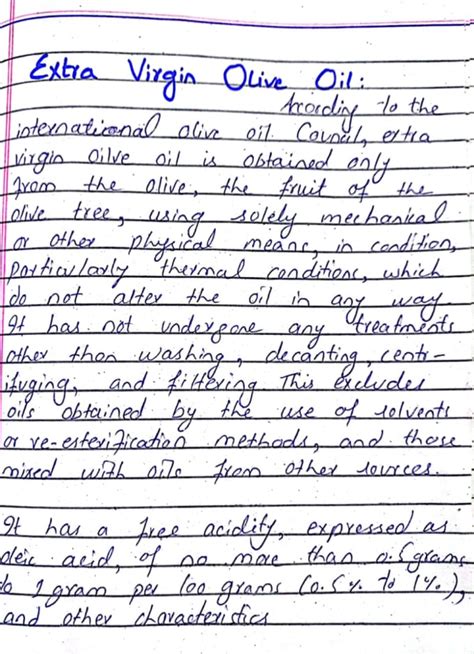 Extra Virgin Olive Oil:
Arcording to the
international olive oil. Council, extra
virgin oilve oil is obtained only
from the olive, the fruit of the
olive tree, using solely mechanical
or other physical means, in condition,
particularly thermal conditions, which
do not alter the oil in any way.
It has not undergone any treatments
other than washing, decanting, centr-
ifuging, and filtering. This excludes
oils obtained by the use of solvents
or re-esterification methods, and those
mixed with oils from other sources.
It has a free acidity, expressed as
oleic acid, of no more than 0.5grams
to 1 gram per 100 grams (0.5% to 1%.),
and other characteristics